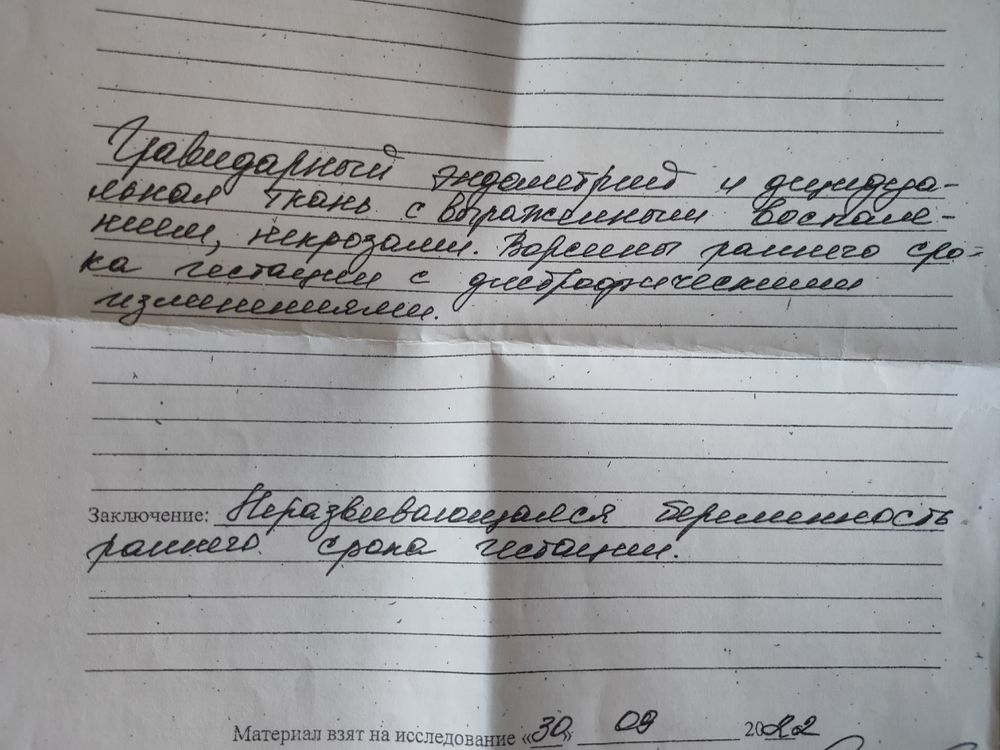 Гравидарный эндометрий и децидуа-
льная ткань с выраженным воспале-
нием, некрозами. Ворсины раннего сро-
ка гестации с дистрофическими
изменениями.
Заключение: Неразвивающаяся беременность
раннего срока гестации.
Материал взят на исследование «30» 09 2022